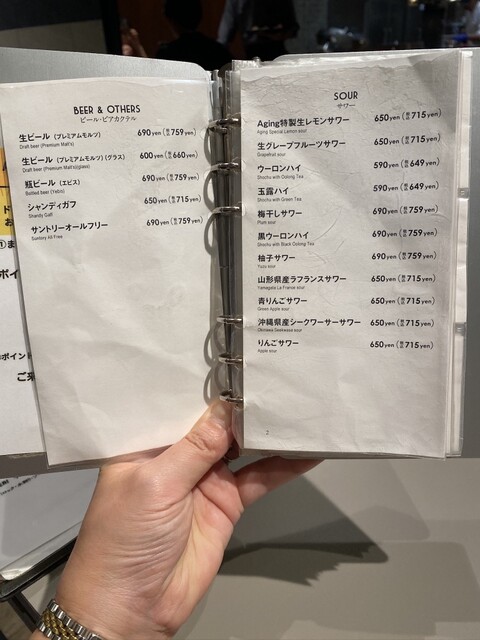 BEER & OTHERS
ビール・ビアカクテル
生ビール (プレミアムモルツ) 690yen (税込759yen)
Draft beer (Premium Malt's)
生ビール (プレミアムモルツ) (グラス) 600yen (税込660yen)
Draft beer (Premium Malt's)(glass)
瓶ビール (エビス) 690yen (税込759yen)
Bottled beer (Yebis)
シャンディガフ 650yen (税込715yen)
Shandy Gaff
サントリーオールフリー 690yen (税込759yen)
Suntory All Free
SOUR
サワー
Aging特製生レモンサワー 650yen (税込715yen)
Aging Special Lemon sour
生グレープフルーツサワー 650yen (税込715yen)
Grapefruit sour
ウーロンハイ 590yen (税込649yen)
Shochu with Oolong Tea
玉露ハイ 590yen (税込649yen)
Shochu with Green Tea
梅干しサワー 690yen (税込759yen)
Plum sour
黒ウーロンハイ 690yen (税込759yen)
Shochu with Black Oolong Tea
柚子サワー 690yen (税込759yen)
Yuzu sour
山形県産ラフランスサワー 650yen (税込715yen)
Yamagata La France sour
青りんごサワー 650yen (税込715yen)
Green Apple sour
沖縄県産シークワーサーサワー 650yen (税込715yen)
Okinawa Seekwasa sour
りんごサワー 650yen (税込715yen)
Apple sour
2
①ま
ポイ
ポイント
ご来